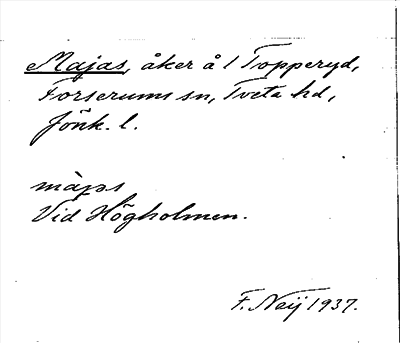 Majas, åker å 1 Topperyd,
Forserums sn, Tveta hd,
Jönk. l.
màjas
Vid Högholmen.
F. Neij 1937.